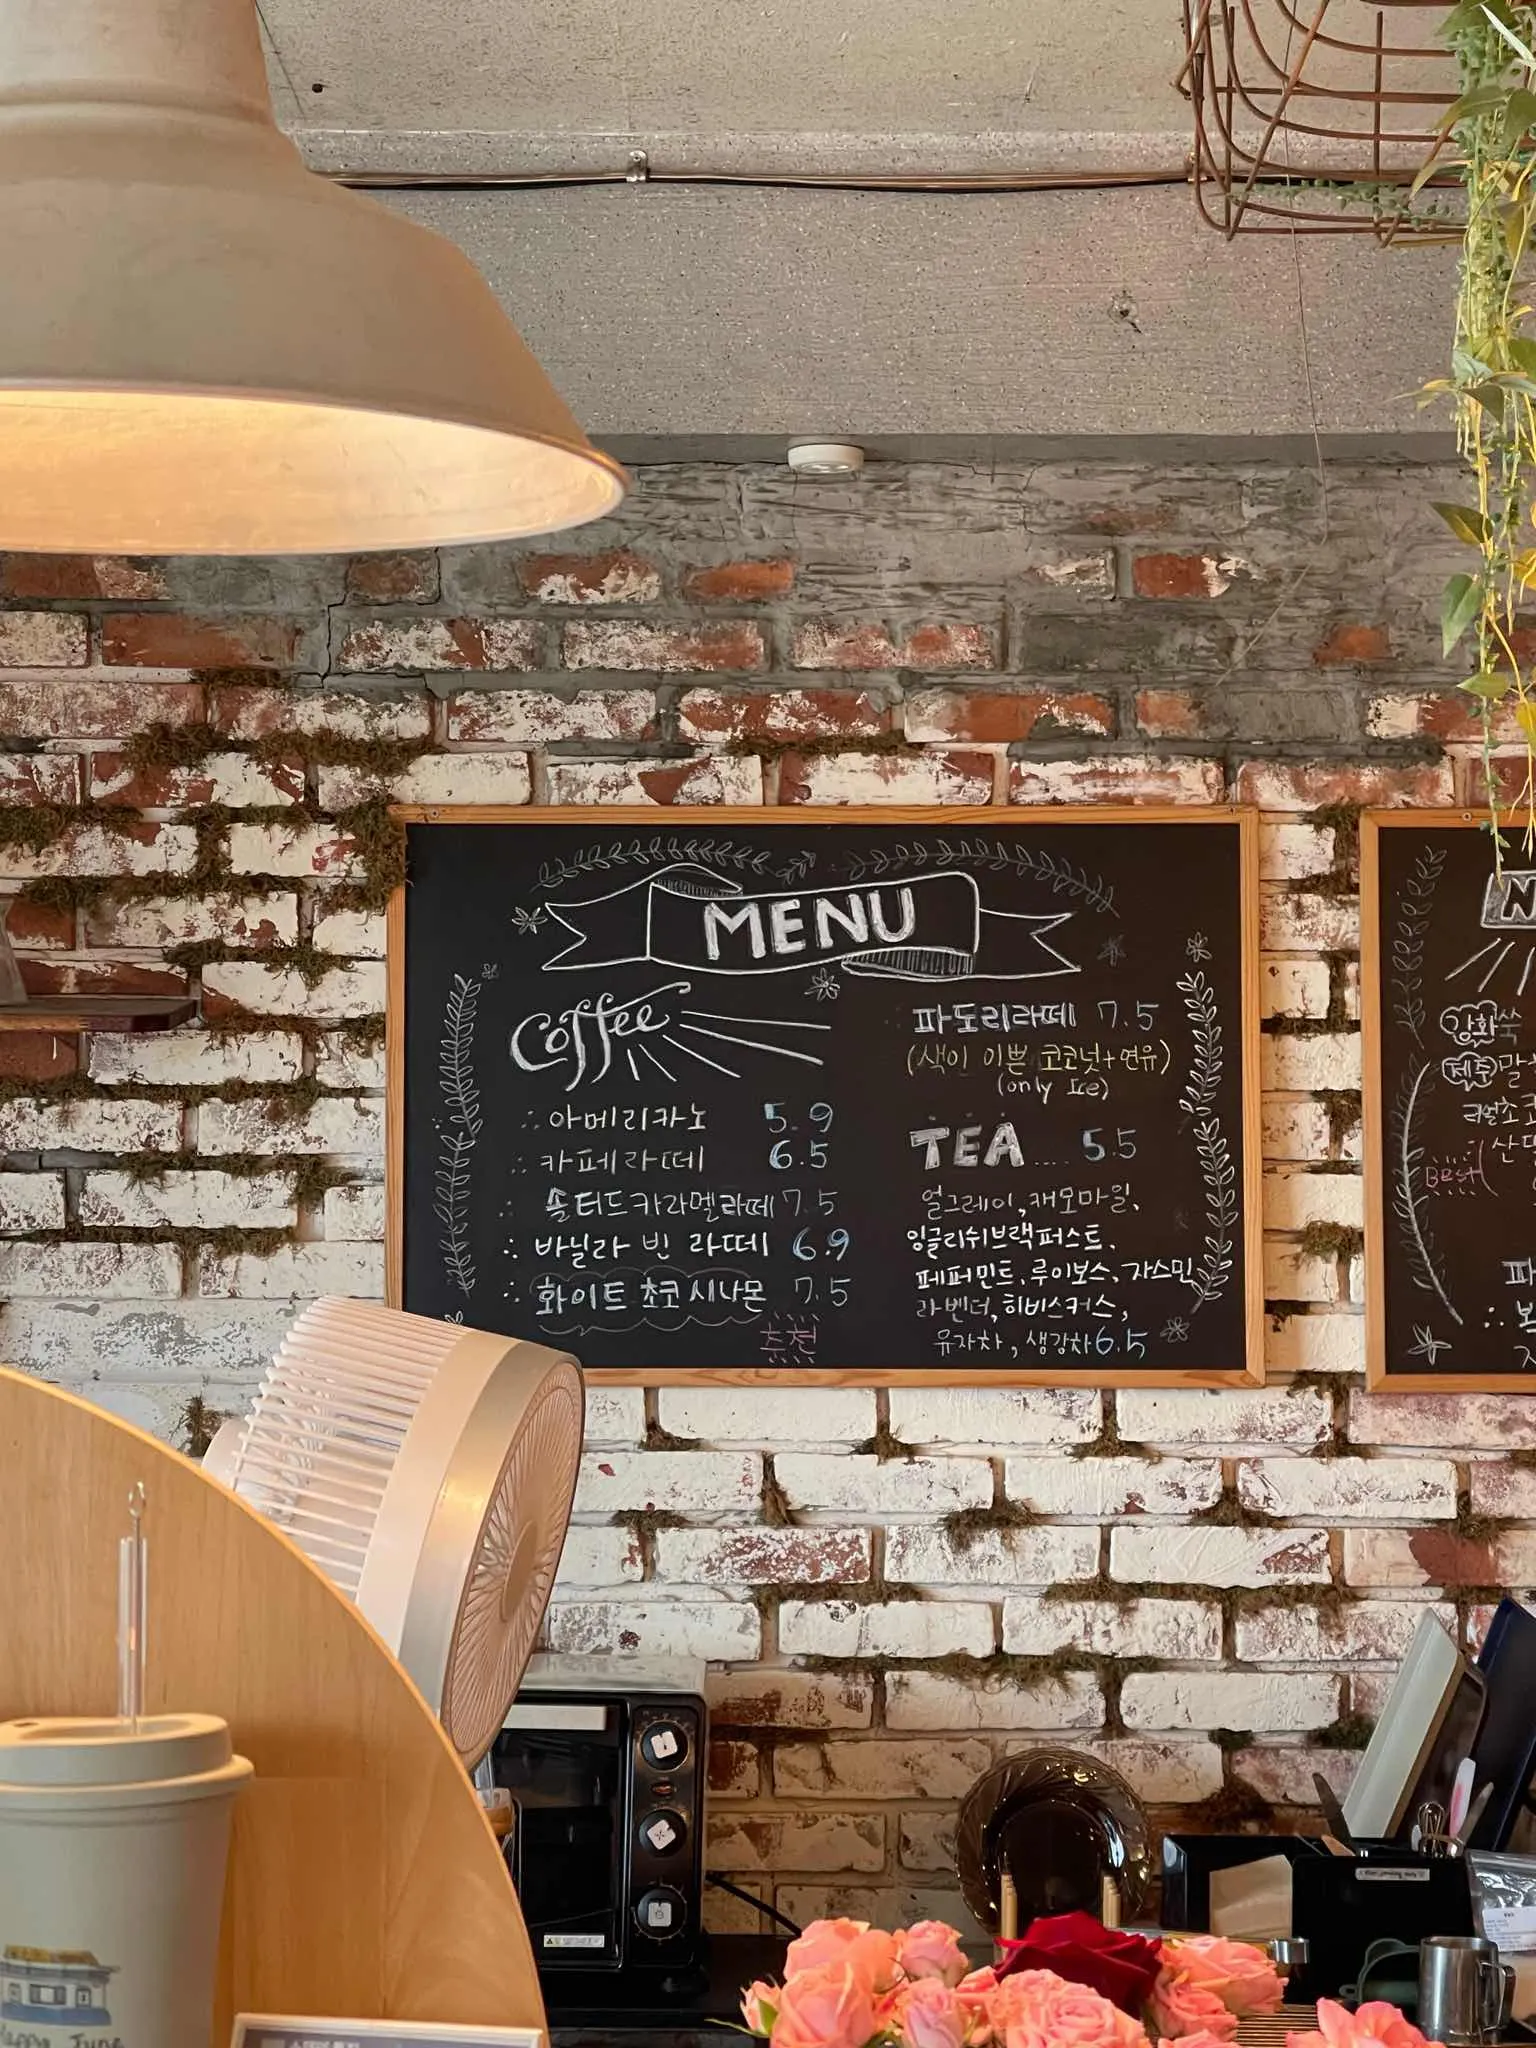 MENU
Coffee
아메리카노 5.9
카페라떼 6.5
솔티드카라멜라떼 7.5
바닐라 빈 라떼 6.9
화이트 초코 시나몬 7.5
추천
파도리라떼 7.5
(색이 이쁜 코코넛+연유)
(only Ice)
TEA.... 5.5
얼그레이, 캐모마일,
잉글리쉬브랙퍼스트,
페퍼민트, 루이보스, 쟈스민,
라벤더, 히비스커스,
유자차, 생강차 6.5
강화쑥
제주말
리얼초코
Best
Happy June